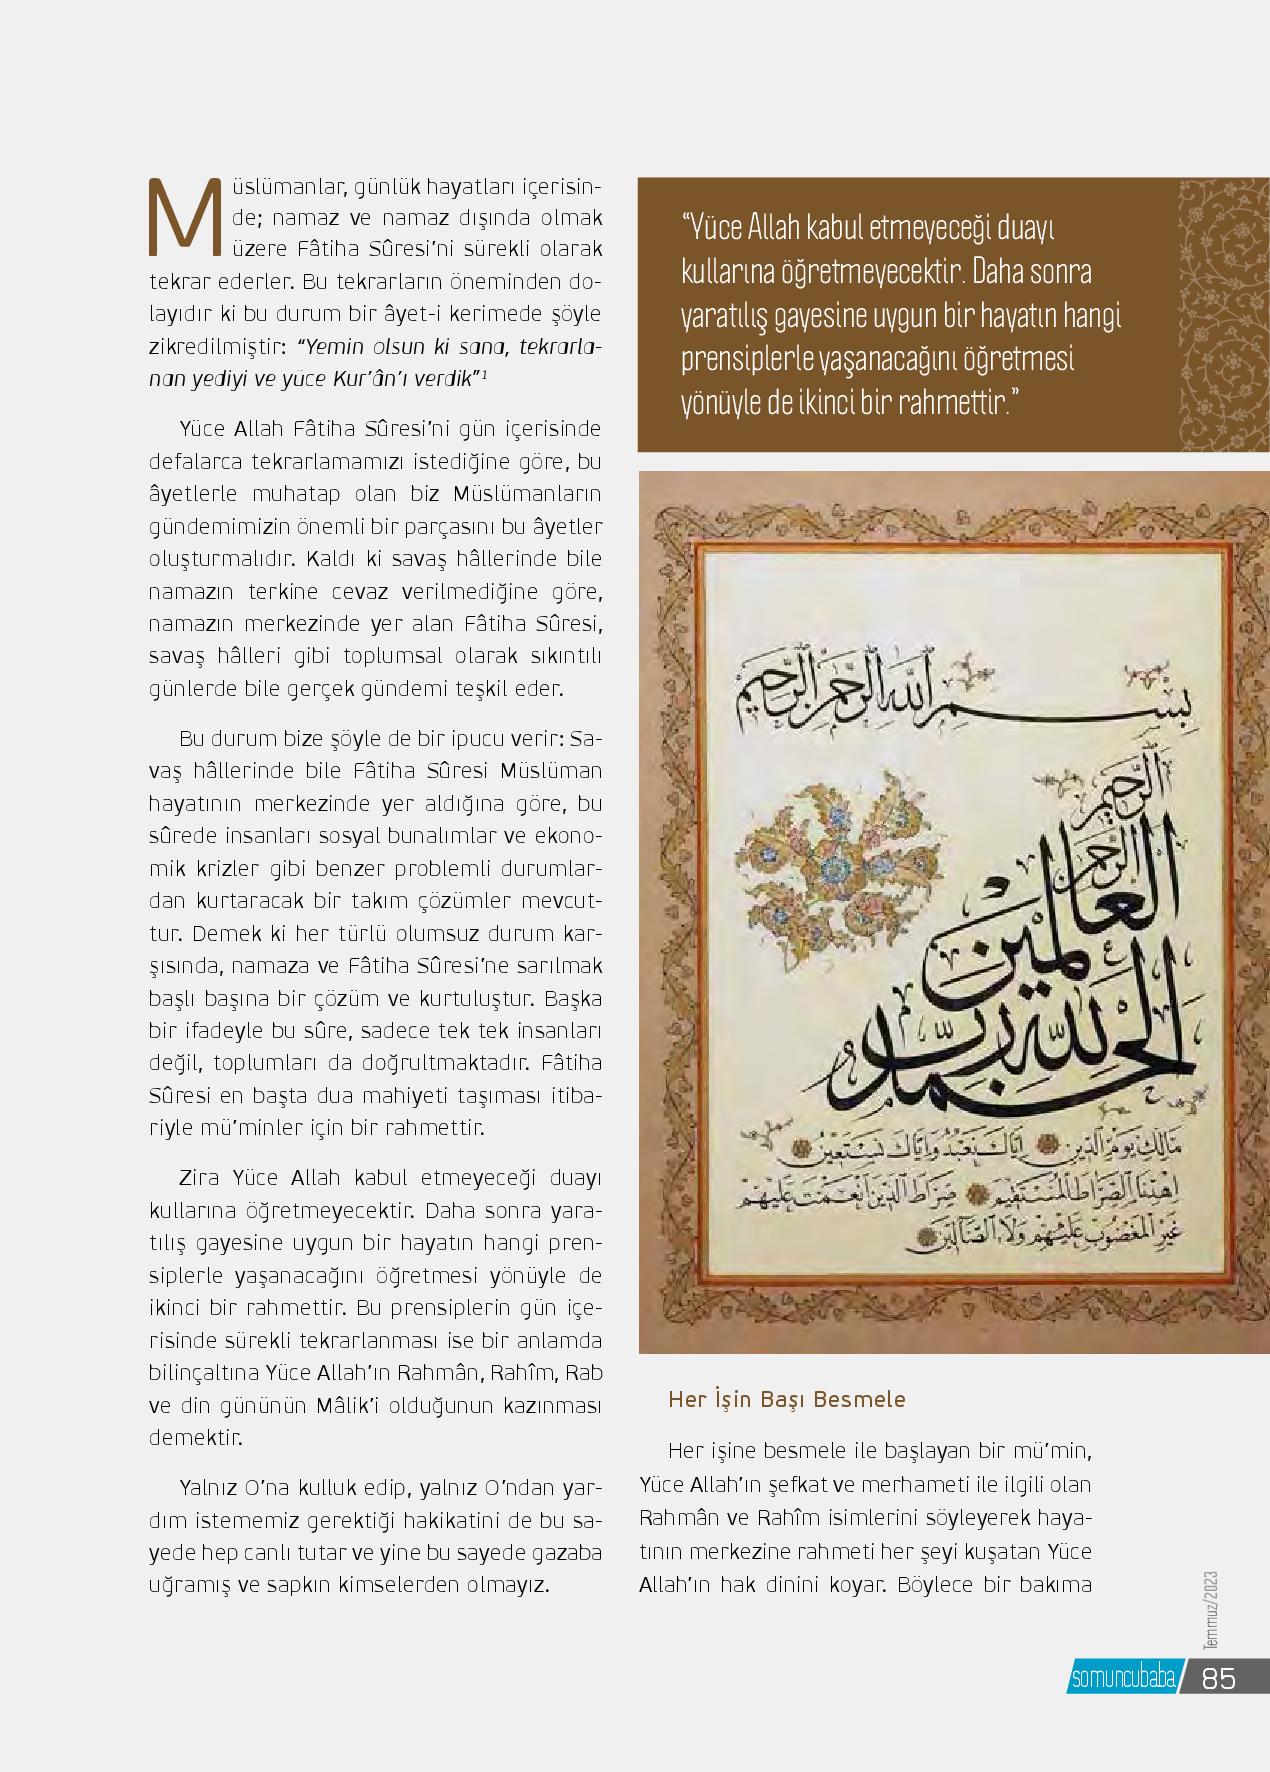 Müslümanlar, günlük hayatları içerisin-
de; namaz ve namaz dışında olmak
üzere Fâtiha Sûresi’ni sürekli olarak
tekrar ederler. Bu tekrarların öneminden do-
layıdır ki bu durum bir âyet-i kerimede şöyle
zikredilmiştir: “Yemin olsun ki sana, tekrarla-
nan yediyi ve yüce Kur’ân’ı verdik”1
Yüce Allah Fâtiha Sûresi’ni gün içerisinde
defalarca tekrarlamamızı istediğine göre, bu
âyetlerle muhatap olan biz Müslümanların
gündemimizin önemli bir parçasını bu âyetler
oluşturmalıdır. Kaldı ki savaş hâllerinde bile
namazın terkine cevaz verilmediğine göre,
namazın merkezinde yer alan Fâtiha Sûresi,
savaş hâlleri gibi toplumsal olarak sıkıntılı
günlerde bile gerçek gündemi teşkil eder.
Bu durum bize şöyle de bir ipucu verir: Sa-
vaş hâllerinde bile Fâtiha Sûresi Müslüman
hayatının merkezinde yer aldığına göre, bu
sûrede insanları sosyal bunalımlar ve ekono-
mik krizler gibi benzer problemli durumlar-
dan kurtaracak bir takım çözümler mevcut-
tur. Demek ki her türlü olumsuz durum kar-
şısında, namaza ve Fâtiha Sûresi’ne sarılmak
başlı başına bir çözüm ve kurtuluştur. Başka
bir ifadeyle bu sûre, sadece tek tek insanları
değil, toplumları da doğrultmaktadır. Fâtiha
Sûresi en başta dua mahiyeti taşıması itiba-
riyle mü’minler için bir rahmettir.
Zira Yüce Allah kabul etmeyeceği duayı
kullarına öğretmeyecektir. Daha sonra yara-
tılış gayesine uygun bir hayatın hangi pren-
siplerle yaşanacağını öğretmesi yönüyle de
ikinci bir rahmettir. Bu prensiplerin gün içe-
risinde sürekli tekrarlanması ise bir anlamda
bilinçaltına Yüce Allah’ın Rahmân, Rahîm, Rab
ve din gününün Mâlik’i olduğunun kazınması
demektir.
Yalnız O’na kulluk edip, yalnız O’ndan yar-
dım istememiz gerektiği hakikatini de bu sa-
yede hep canlı tutar ve yine bu sayede gazaba
uğramış ve sapkın kimselerden olmayız.
“Yüce Allah kabul etmeyeceği duayı
kullarına öğretmeyecektir. Daha sonra
yaratılış gayesine uygun bir hayatın hangi
prensiplerle yaşanacağını öğretmesi
yönüyle de ikinci bir rahmettir.”
بسم الله الرحمن الرحيم
الحمد لله رب العالمين
الرحمن الرحيم
مالك يوم الدين اياك نعبد واياك نستعين
اهدنا الصراط المستقيم صراط الذين انعمت عليهم
غير المغضوب عليهم ولا الضالين
Her İşin Başı Besmele
Her işine besmele ile başlayan bir mü’min,
Yüce Allah’ın şefkat ve merhameti ile ilgili olan
Rahmân ve Rahîm isimlerini söyleyerek haya-
tının merkezine rahmeti her şeyi kuşatan Yüce
Allah’ın hak dinini koyar. Böylece bir bakıma
Temmuz/2023
somuncubaba 85